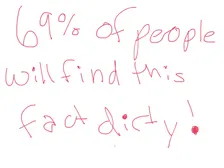 69% of people
will find this
fact dicty!